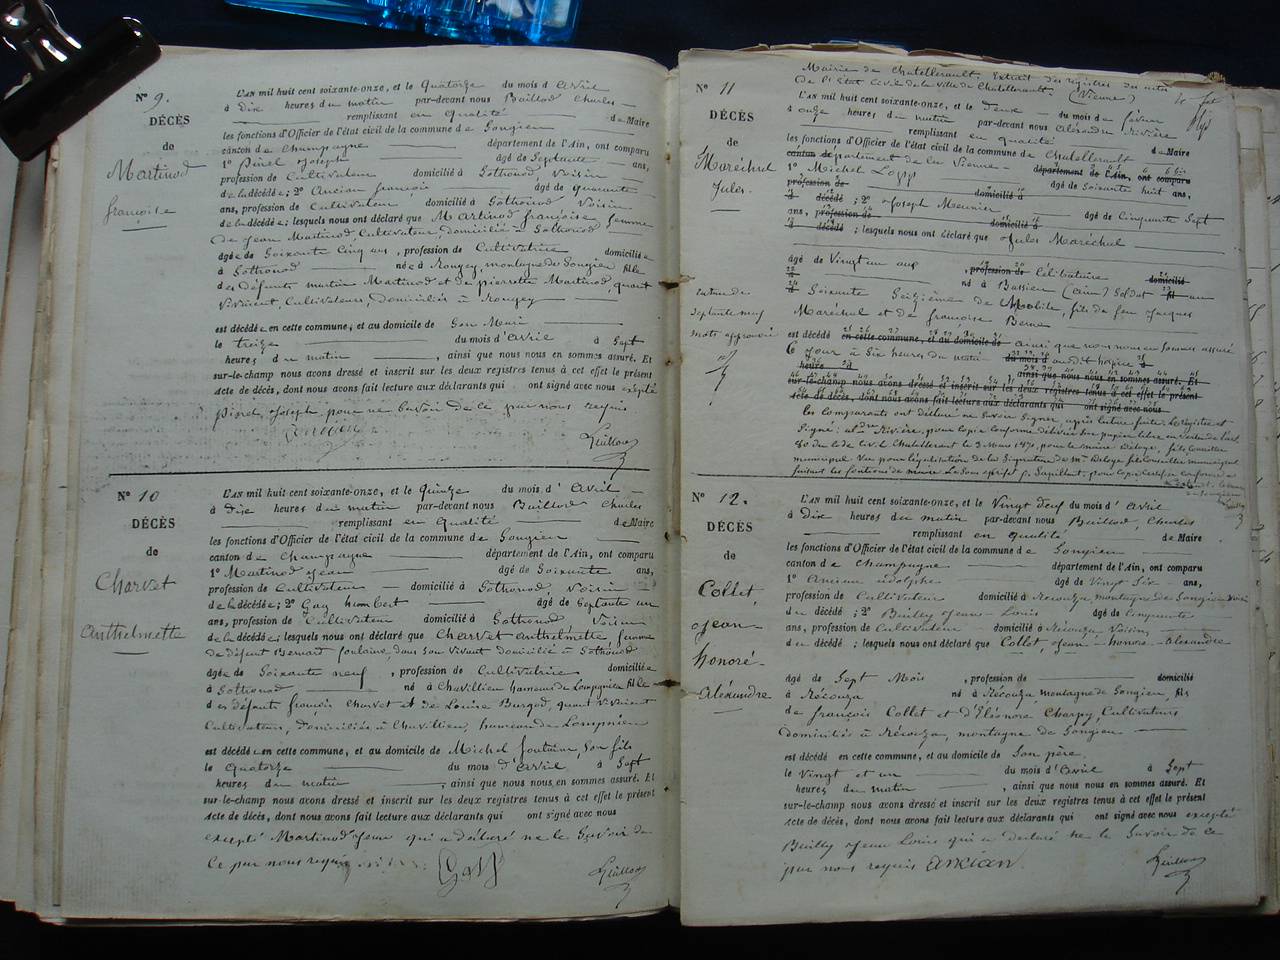 N° 9.
DÉCÈS
de
Martinod
françoise
L'AN mil huit cent soixante-onze, et le quatorze du mois d'avril
à Dix heures du matin par-devant nous Baillod Charles
remplissant en qualité de Maire
les fonctions d'Officier de l'état civil de la commune de Songieu
canton de Champagne département de l'Ain, ont comparu
1° Pinel Joseph âgé de Septante ans,
profession de Cultivateur domicilié à Sothonod, Voisin
de la décédée ; 2° Ancian françois âgé de quarante
ans, profession de Cultivateur domicilié à Sothonod Voisin
de la décédée ; lesquels nous ont déclaré que Martinod françoise femme
de Jean Martinod Cultivateur, domicilié à Sothonod
âgée de Soixante Cinq ans, profession de Cultivatrice domiciliée
à Sothonod née à montagne de Songieu fille
des défunts martin Martinod et de pierrette Martinod, quant
vivaient, Cultivateurs, domiciliés à
est décédée en cette commune, et au domicile de Son Mari
le treize du mois d'avril à Sept
heures du matin, ainsi que nous nous en sommes assuré. Et
sur-le-champ nous avons dressé et inscrit sur les deux registres tenus à cet effet le présent
acte de décès, dont nous avons fait lecture aux déclarants qui ont signé avec nous excepté
pinel Joseph, pour ne Savoir de ce par nous requis
N° 10
DÉCÈS
de
Charvet
anthelmette
L'AN mil huit cent soixante-onze, et le quinze du mois d'avril
à Dix heures du matin par-devant nous Baillod Charles
remplissant en qualité de Maire
les fonctions d'Officier de l'état civil de la commune de Songieu
canton de Champagne département de l'Ain, ont comparu
1° Martinod Jean âgé de Soixante ans,
profession de Cultivateur domicilié à Sothonod, Voisin
de la décédée ; 2° Gay humbert âgé de Septante un
ans, profession de Cultivateur domicilié à Sothonod Voisin
de la décédée ; lesquels nous ont déclaré que Charvet anthelmette, femme
de défunt Bernard foulaine, dans son Vivant domicilié à Sothonod
âgée de Soixante neuf, profession de Cultivatrice domiciliée
à Sothonod né à Chavillieu hameau de Lompnieu fille
des défunts françois Charvet et de Louise Burgod, quant vivaient
Cultivateurs, domiciliés à Chavillieu, hameau de Lompnieu
est décédée en cette commune, et au domicile de Michel foulaine, Son fils
le quatorze du mois d'avril à Sept
heures du matin, ainsi que nous nous en sommes assuré. Et
sur-le-champ nous avons dressé et inscrit sur les deux registres tenus à cet effet le présent
acte de décès, dont nous avons fait lecture aux déclarants qui ont signé avec nous
excepté Martinod Jean qui a déclaré ne le Savoir de
ce par nous requis
Gay
N° 11
DÉCÈS
de
Maréchal
Jules
Mairie de Chatellerault, Extrait des registres des actes
de l'Etat Civil de la Ville de Chatellerault (Vienne)
L'AN mil huit cent soixante-onze, et le deux du mois de février
à onze heures du matin par-devant nous Alexandre Rivière
remplissant en qualité de Maire
les fonctions d'Officier de l'état civil de la commune de Chatellerault
canton de département de la Vienne département de l'Ain, ont comparu
1° Michel âgé de Soixante huit ans,
profession de domicilié à
décédé ; 2° Joseph Meunier âgé de Cinquante Sept
ans, profession de domicilié à
décédé ; lesquels nous ont déclaré que Jules Maréchal
âgé de Vingt un ans, profession de Célibataire domicilié
à né à Bassieu (ain) Soldat fil au
Soixante Seizième de Mobile, fils de feu Jacques
Maréchal et de françoise Berne
mots approuvé
est décédé en cette commune, et au domicile de ainsi que nous nous en sommes assuré
le jour à Six heures du matin du mois d' audit hospice
heures d ainsi que nous nous en sommes assuré. Et
sur-le-champ nous avons dressé et inscrit sur les deux registres tenus à cet effet le présent
acte de décès, dont nous avons fait lecture aux déclarants qui ont signé avec nous
les comparants ont déclaré ne Savoir Signer, après lecture faite, Le registre est
Signé : Rivière, pour copie conforme délivrée sur papier libre en vertu de l'art.
80 du Code Civ. Chatellerault le 3 Mars 1871, pour le maire
municipal Vu pour légalisation de la Signature de Mr Conseiller municipal
faisant les fonctions de maire
N° 12.
DÉCÈS
de
Collet,
Jean-
honoré-
Aléxandre
L'AN mil huit cent soixante-onze, et le Vingt Neuf du mois d'avril
à Dix heures du matin par-devant nous Baillod, Charles
remplissant en qualité de Maire
les fonctions d'Officier de l'état civil de la commune de Songieu
canton de Champagne département de l'Ain, ont comparu
1° Ancian adolphe âgé de Vingt Six ans,
profession de Cultivateur domicilié à Récouza, montagne de Songieu Voisin
du décédé ; 2° Bailly Jean-Louis âgé de Cinquante
ans, profession de Cultivateur domicilié à Récouza Voisin
du décédé ; lesquels nous ont déclaré que Collet, Jean-honoré-Alexandre
âgé de Sept Mois, profession de domicilié
à Récouza né à Récouza, montagne de Songieu, fils
de françois Collet et d'Éléonore Charpy, Cultivateurs
domiciliés à Récouza, montagne de Songieu
est décédé en cette commune, et au domicile de Son père
le Vingt et un du mois d'avril à Sept
heures du matin, ainsi que nous nous en sommes assuré. Et
sur-le-champ nous avons dressé et inscrit sur les deux registres tenus à cet effet le présent
acte de décès, dont nous avons fait lecture aux déclarants qui ont signé avec nous excepté
Bailly Jean Louis qui a déclaré ne le Savoir de ce
par nous requis ancian